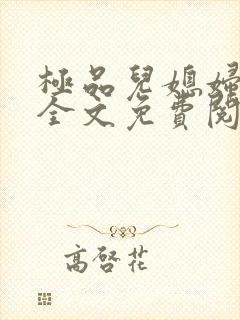 極品兒媳婦
全文免費閱
高啓花